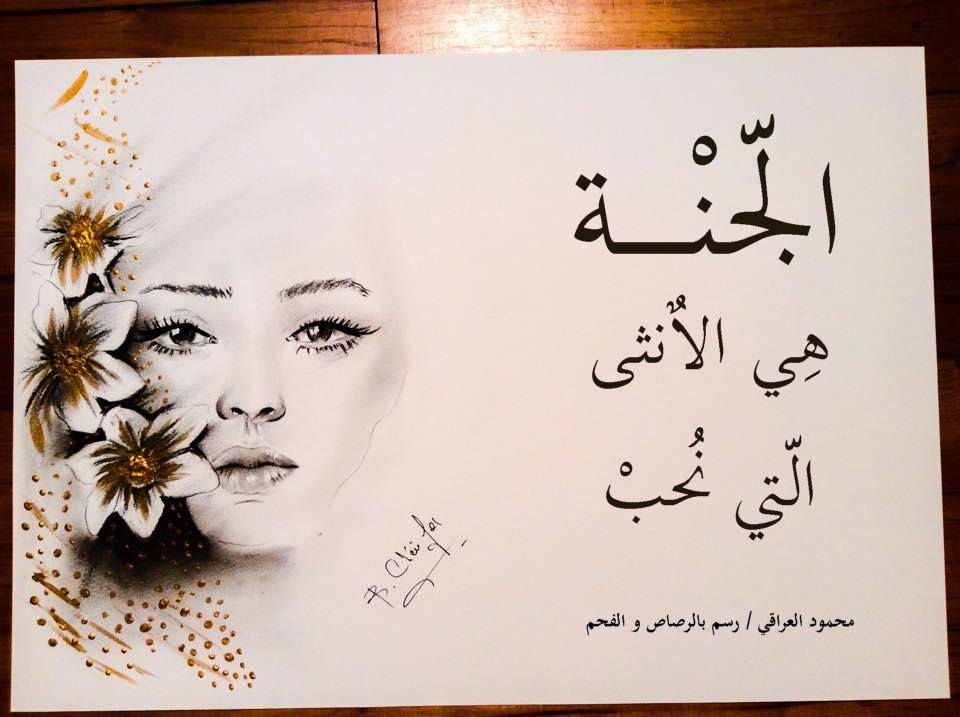 الجّنْـــة
هِي الاُنثى
الّتي نُحبْ
محمود العراقي / رسم بالرصاص و الفحم